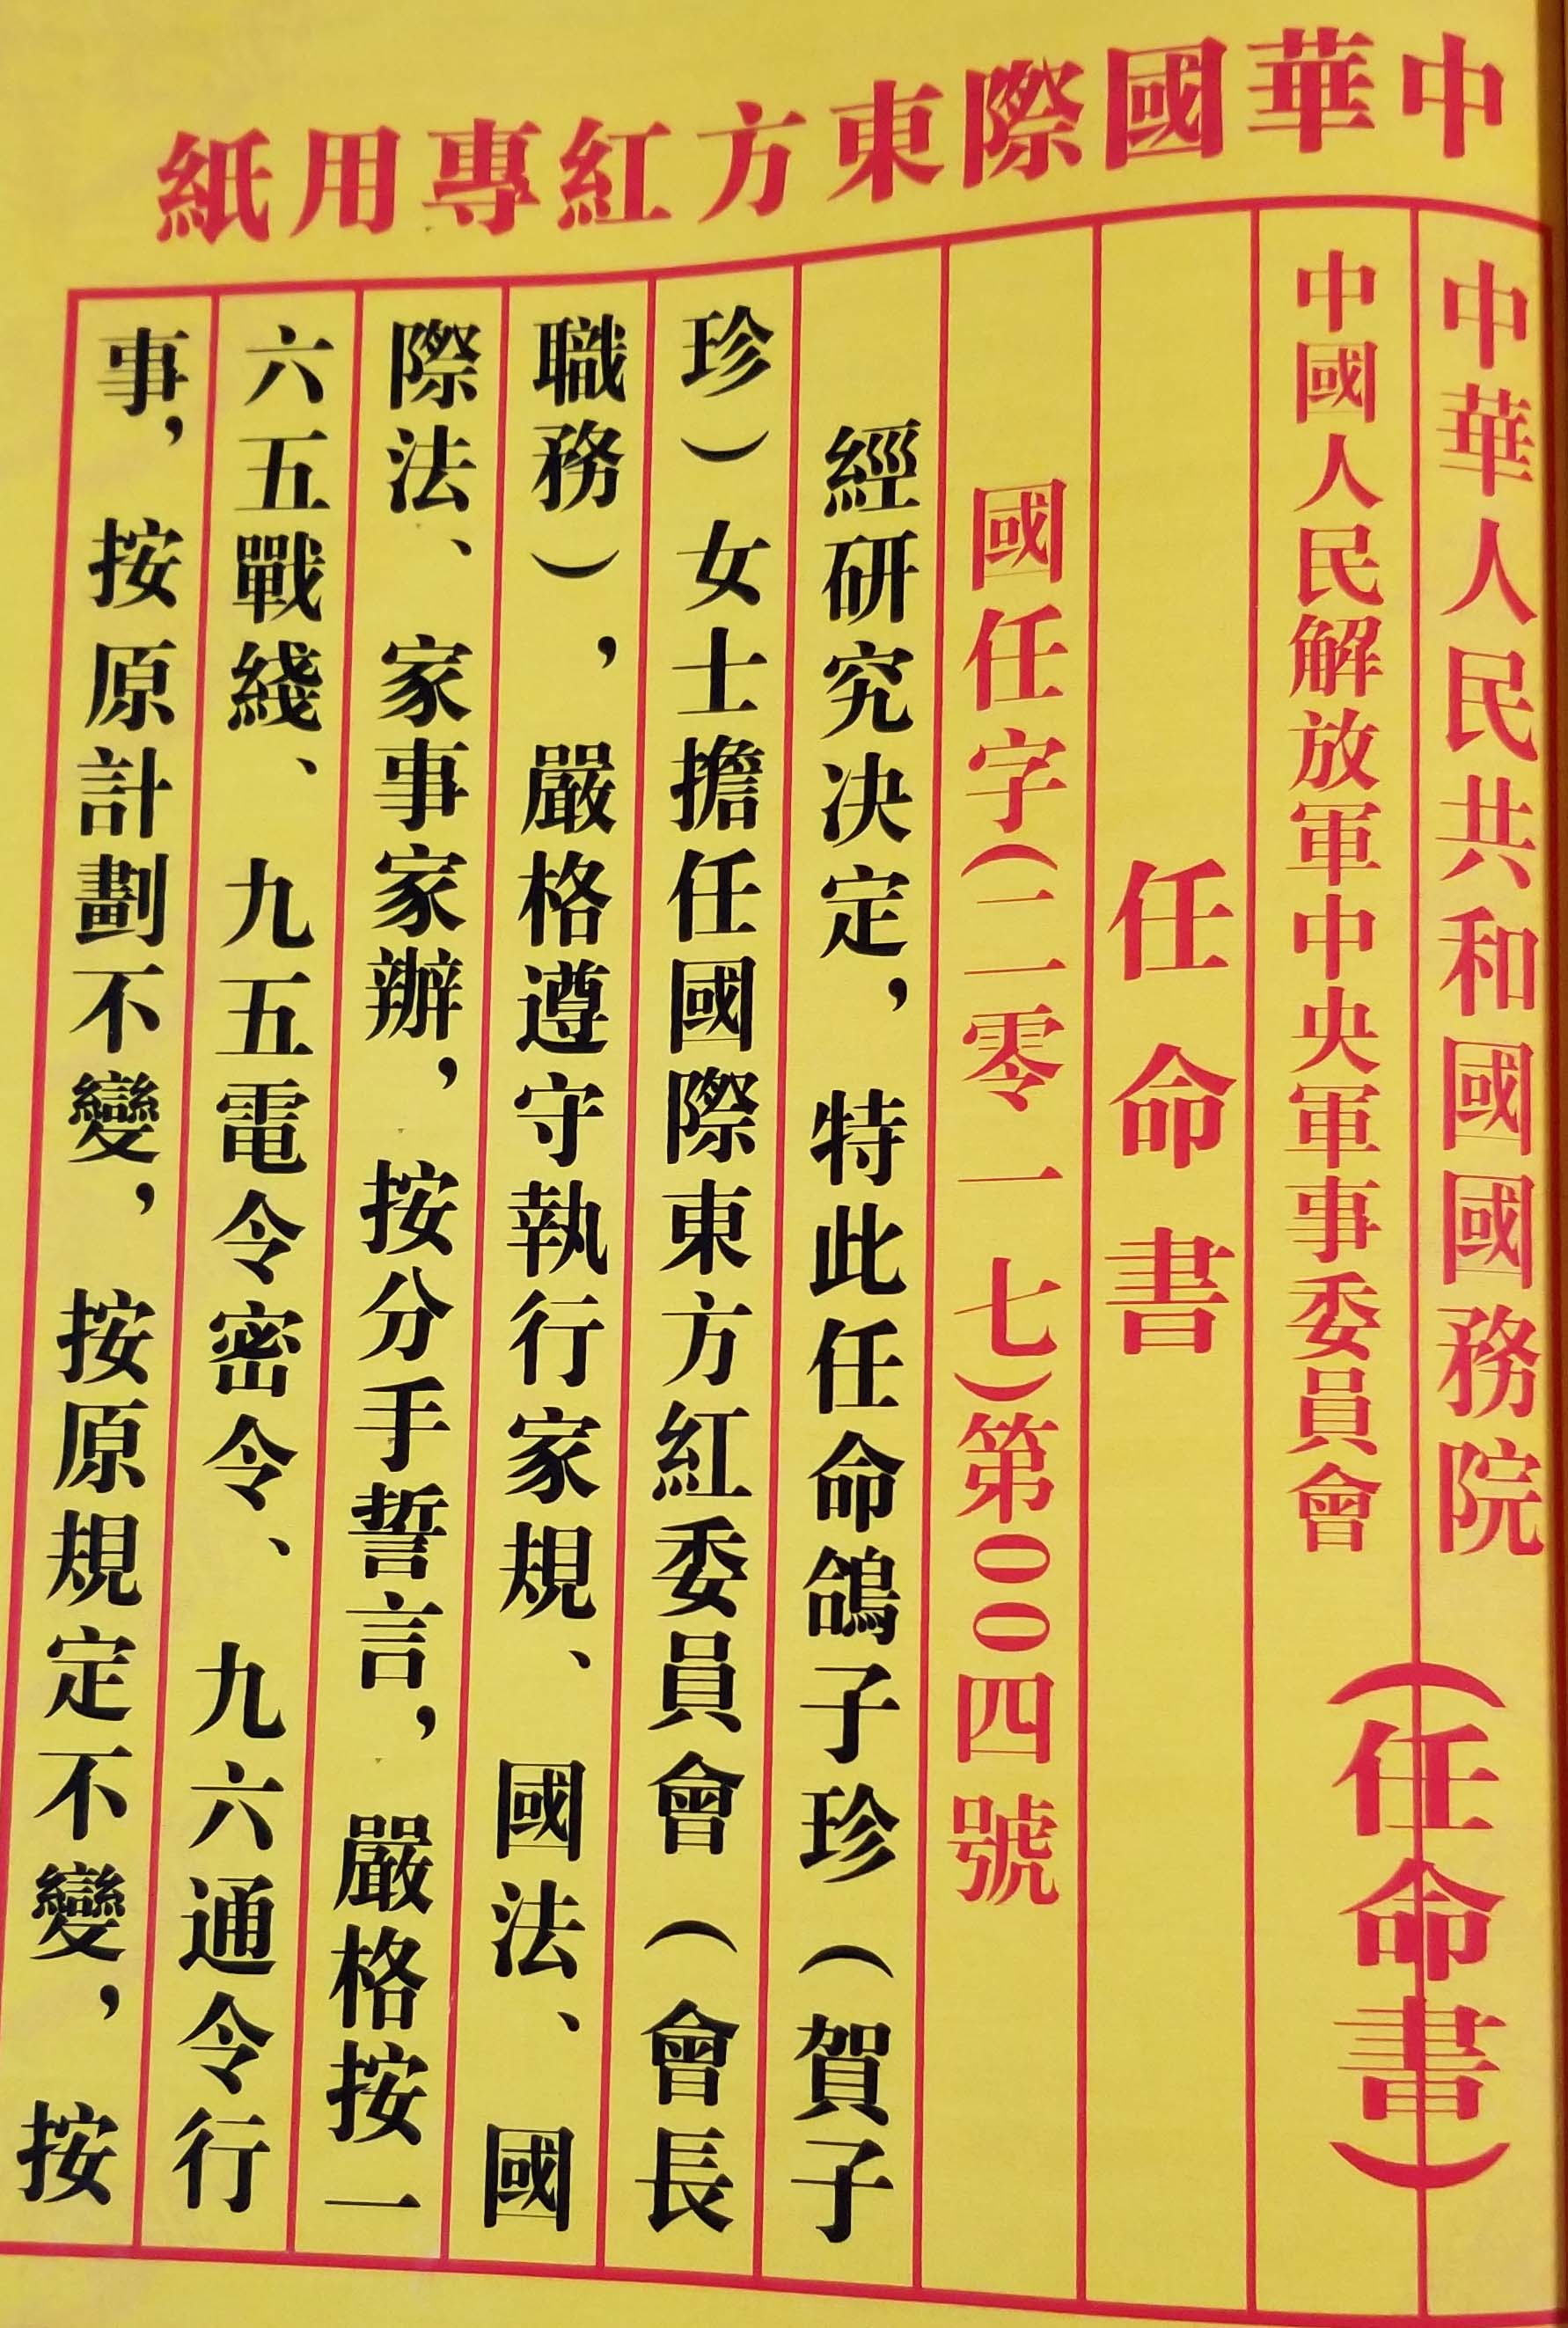 中華國際東方紅專用紙
中華人民共和國國務院
中國人民解放軍中央軍事委員會
（任命書）
任命書
國任字（二零一七）第00四號
經研究决定，特此任命鴿子珍（賀子
珍）女士擔任國際東方紅委員會（會長
職務），嚴格遵守執行家規、國法、國
際法、家事家辦，按分手誓言，嚴格按一
六五戰綫、九五電令密令、九六通令行
事，按原計劃不變，按原規定不變，按